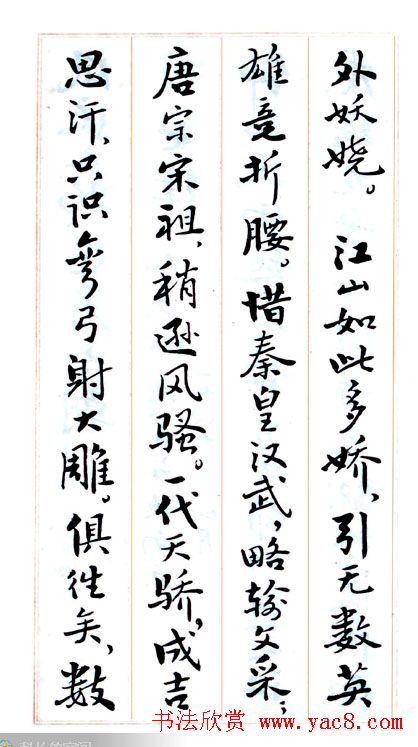 外妖娆。江山如此多娇，引无数英
雄竞折腰。惜秦皇汉武，略输文采；
唐宗宋祖，稍逊风骚。一代天骄，成吉
思汗，只识弯弓射大雕。俱往矣，数
书法欣赏 www.yac8.com